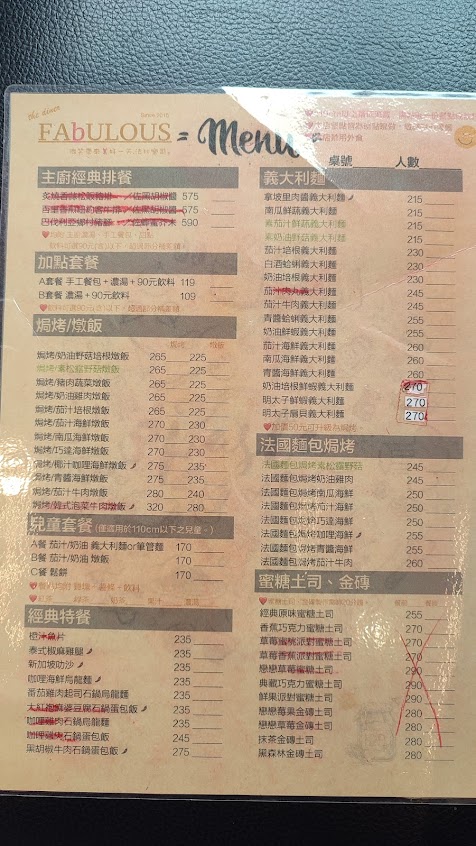 the diner
Since 2010
FAbULOUS
= Menu =
桌號 人數
主廚經典排餐
575
575
590
加點套餐
A套餐 手工餐包+濃湯+90元飲料 119
B套餐 濃湯+90元飲料 110
焗烤/燉飯
焗烤 燉飯
焗烤/奶油野菇培根燉飯 265 225
焗烤/素松菇野菇燉飯 265 225
焗烤/豬肉蔬菜燉飯 265 225
焗烤/奶油雞肉燉飯 265 225
焗烤/茄汁培根燉飯 265 225
焗烤/茄汁海鮮燉飯 270 230
焗烤/南瓜海鮮燉飯 270 230
焗烤/巧達海鮮燉飯 270 230
焗烤/椰汁咖哩海鮮燉飯 275 235
焗烤/青醬海鮮燉飯 275 235
焗烤/茄汁牛肉燉飯 280 240
焗烤/韓式泡菜牛肉燉飯 320 280
兒童套餐 (僅適用於110cm以下之兒童。)
A餐 茄汁/奶油 義大利麵or筆管麵 170
B餐 茄汁/奶油 燉飯 170
C餐 鬆餅 170
經典特餐
橙汁魚片 235
泰式椒麻雞腿 235
新加坡叻沙 235
咖哩海鮮烏龍麵 235
番茄雞肉起司石鍋烏龍麵 235
大紅袍麻婆豆腐石鍋蛋包飯 235
咖哩雞肉石鍋烏龍麵 235
石鍋蛋包飯 245
黑胡椒牛肉石鍋蛋包飯 275
義大利麵
拿坡里肉醬義大利麵 215
南瓜鮮蔬義大利麵 215
素茄汁鮮蔬義大利麵 215
素奶油野菇義大利麵 215
茄汁培根義大利麵 230
白酒蛤蜊義大利麵 230
奶油培根義大利麵 230
茄汁肉丸義大利麵 240
茄汁牛肉義大利麵 245
青醬蛤蜊義大利麵 245
奶油鮮蝦義大利麵 260
茄汁海鮮義大利麵 260
南瓜海鮮義大利麵 260
青醬海鮮義大利麵 260
奶油培根鮮蝦義大利麵 270
明太子鮮蝦義大利麵 270
明太子扇貝義大利麵 270
加價50元可升級為焗烤
法國麵包焗烤
法國麵包焗烤素松菇野菇 245
法國麵包焗烤奶油雞肉 245
法國麵包焗烤南瓜海鮮 250
法國麵包焗烤茄汁海鮮 250
法國麵包焗烤巧達海鮮 250
法國麵包焗烤咖哩海鮮 255
法國麵包焗烤青醬海鮮 255
法國麵包焗烤茄汁牛肉 260
蜜糖土司、金磚
經典原味蜜糖土司 255
香蕉巧克力蜜糖土司 270
草莓蜜桃派對蜜糖土司 270
草莓香蕉派對蜜糖土司 270
戀戀草莓蜜糖土司 290
典藏巧克力蜜糖土司 290
鮮果派對蜜糖土司 290
戀戀莓果金磚土司 280
戀戀草莓金磚土司 280
抹茶金磚土司 280
黑森林金磚土司 280